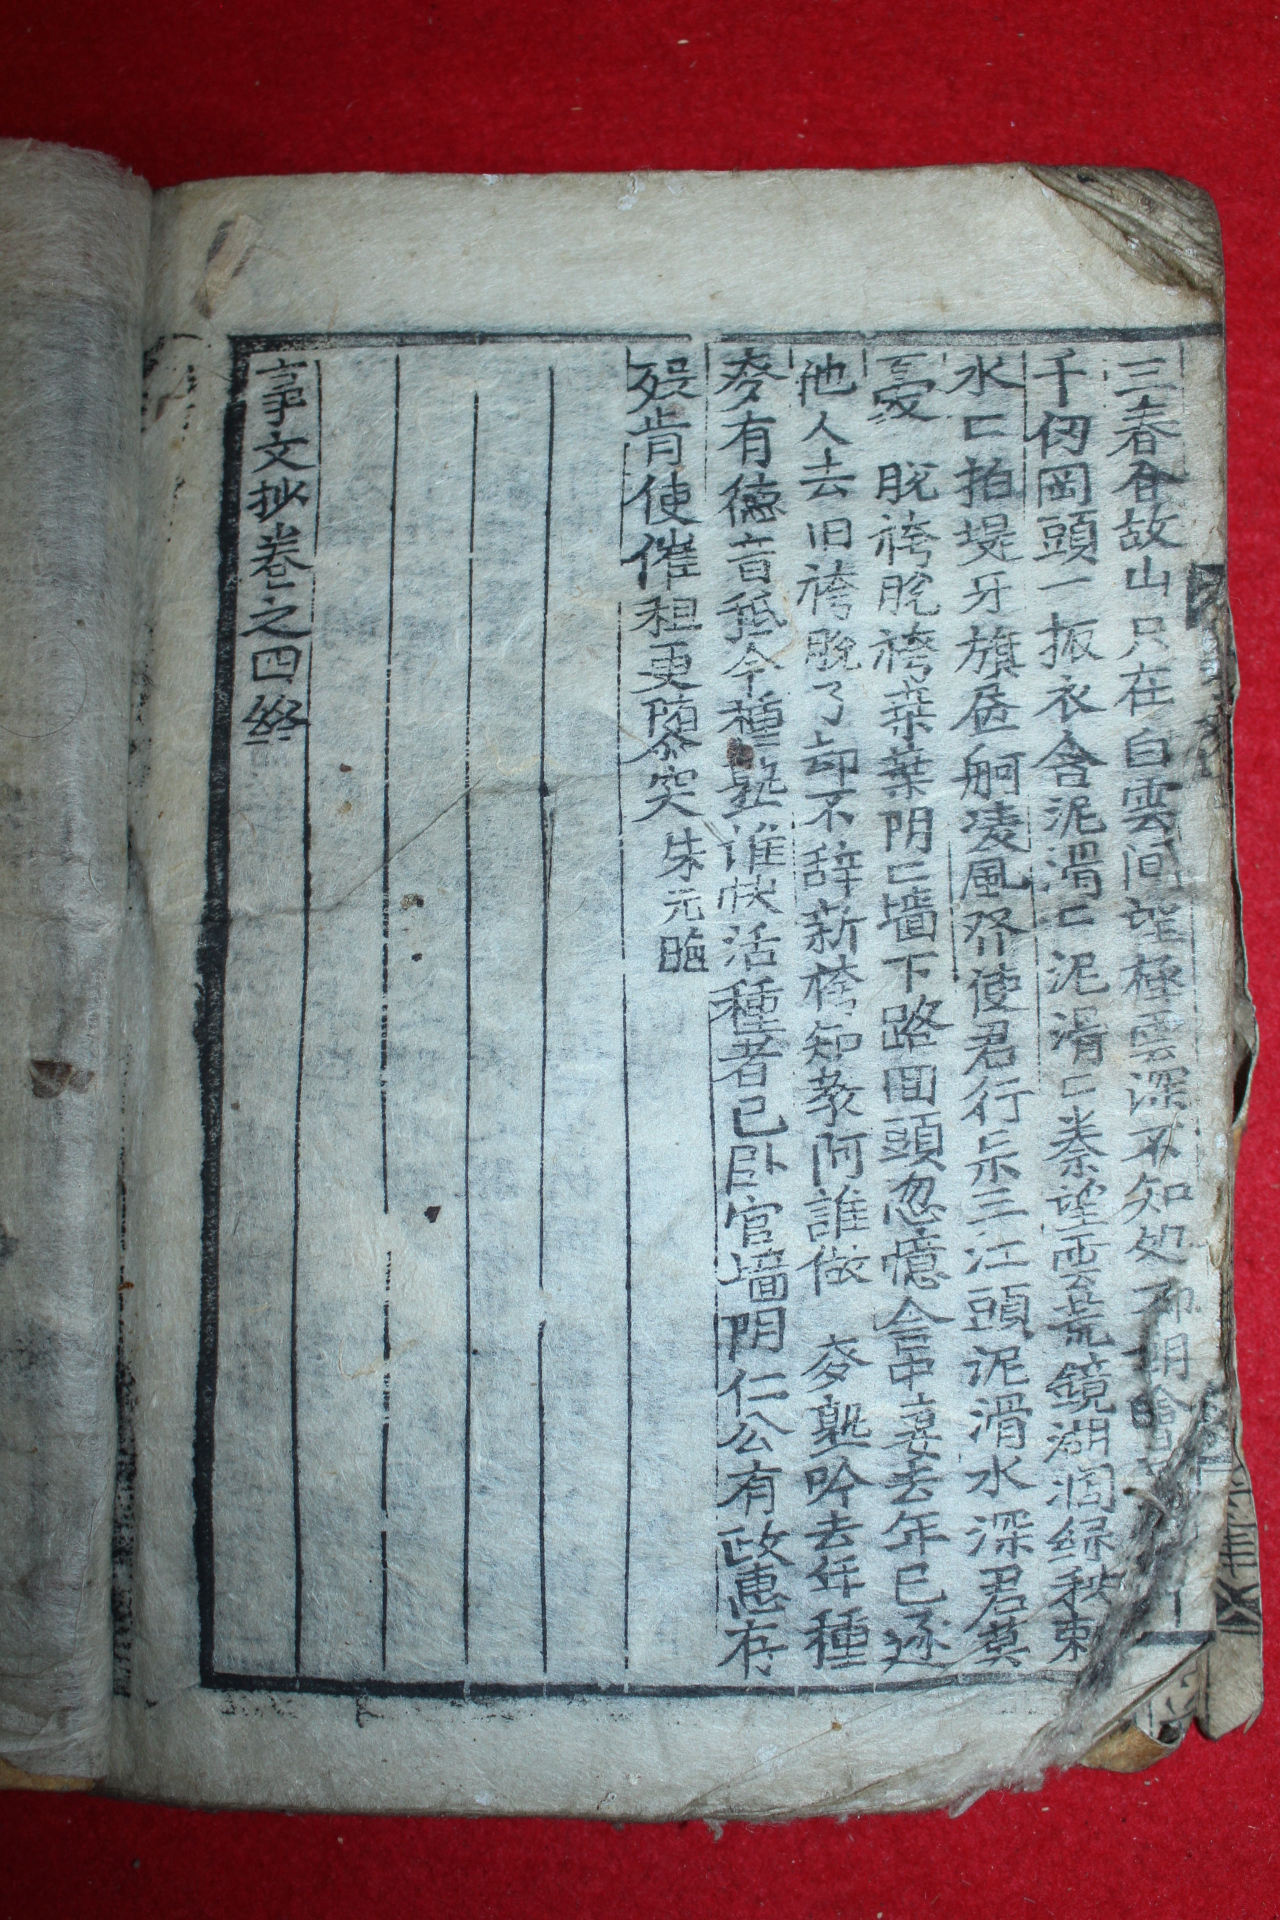 三春谷故山只在白雲间望極雲深不知処不明
千仞岡頭一振衣含泥滑〻泥滑〻秦望雲荒鏡湖润緑秧刺
水〻拍堤牙旗昼舸凌風飛使君行示三江頭泥滑水深君莫
憂　脫袴脫袴桒葉阴〻墙下路回頭忽憶舍中妻去年已逐
他人去旧袴脫了却不辞新袴知教阿誰做　麥𤍨吟去年種
麥有德音秪今種𤍨谁快活種者已卧官墙阴仁公有政惠存
殁肯使催租更隳突朱元晦
事文抄卷之四終